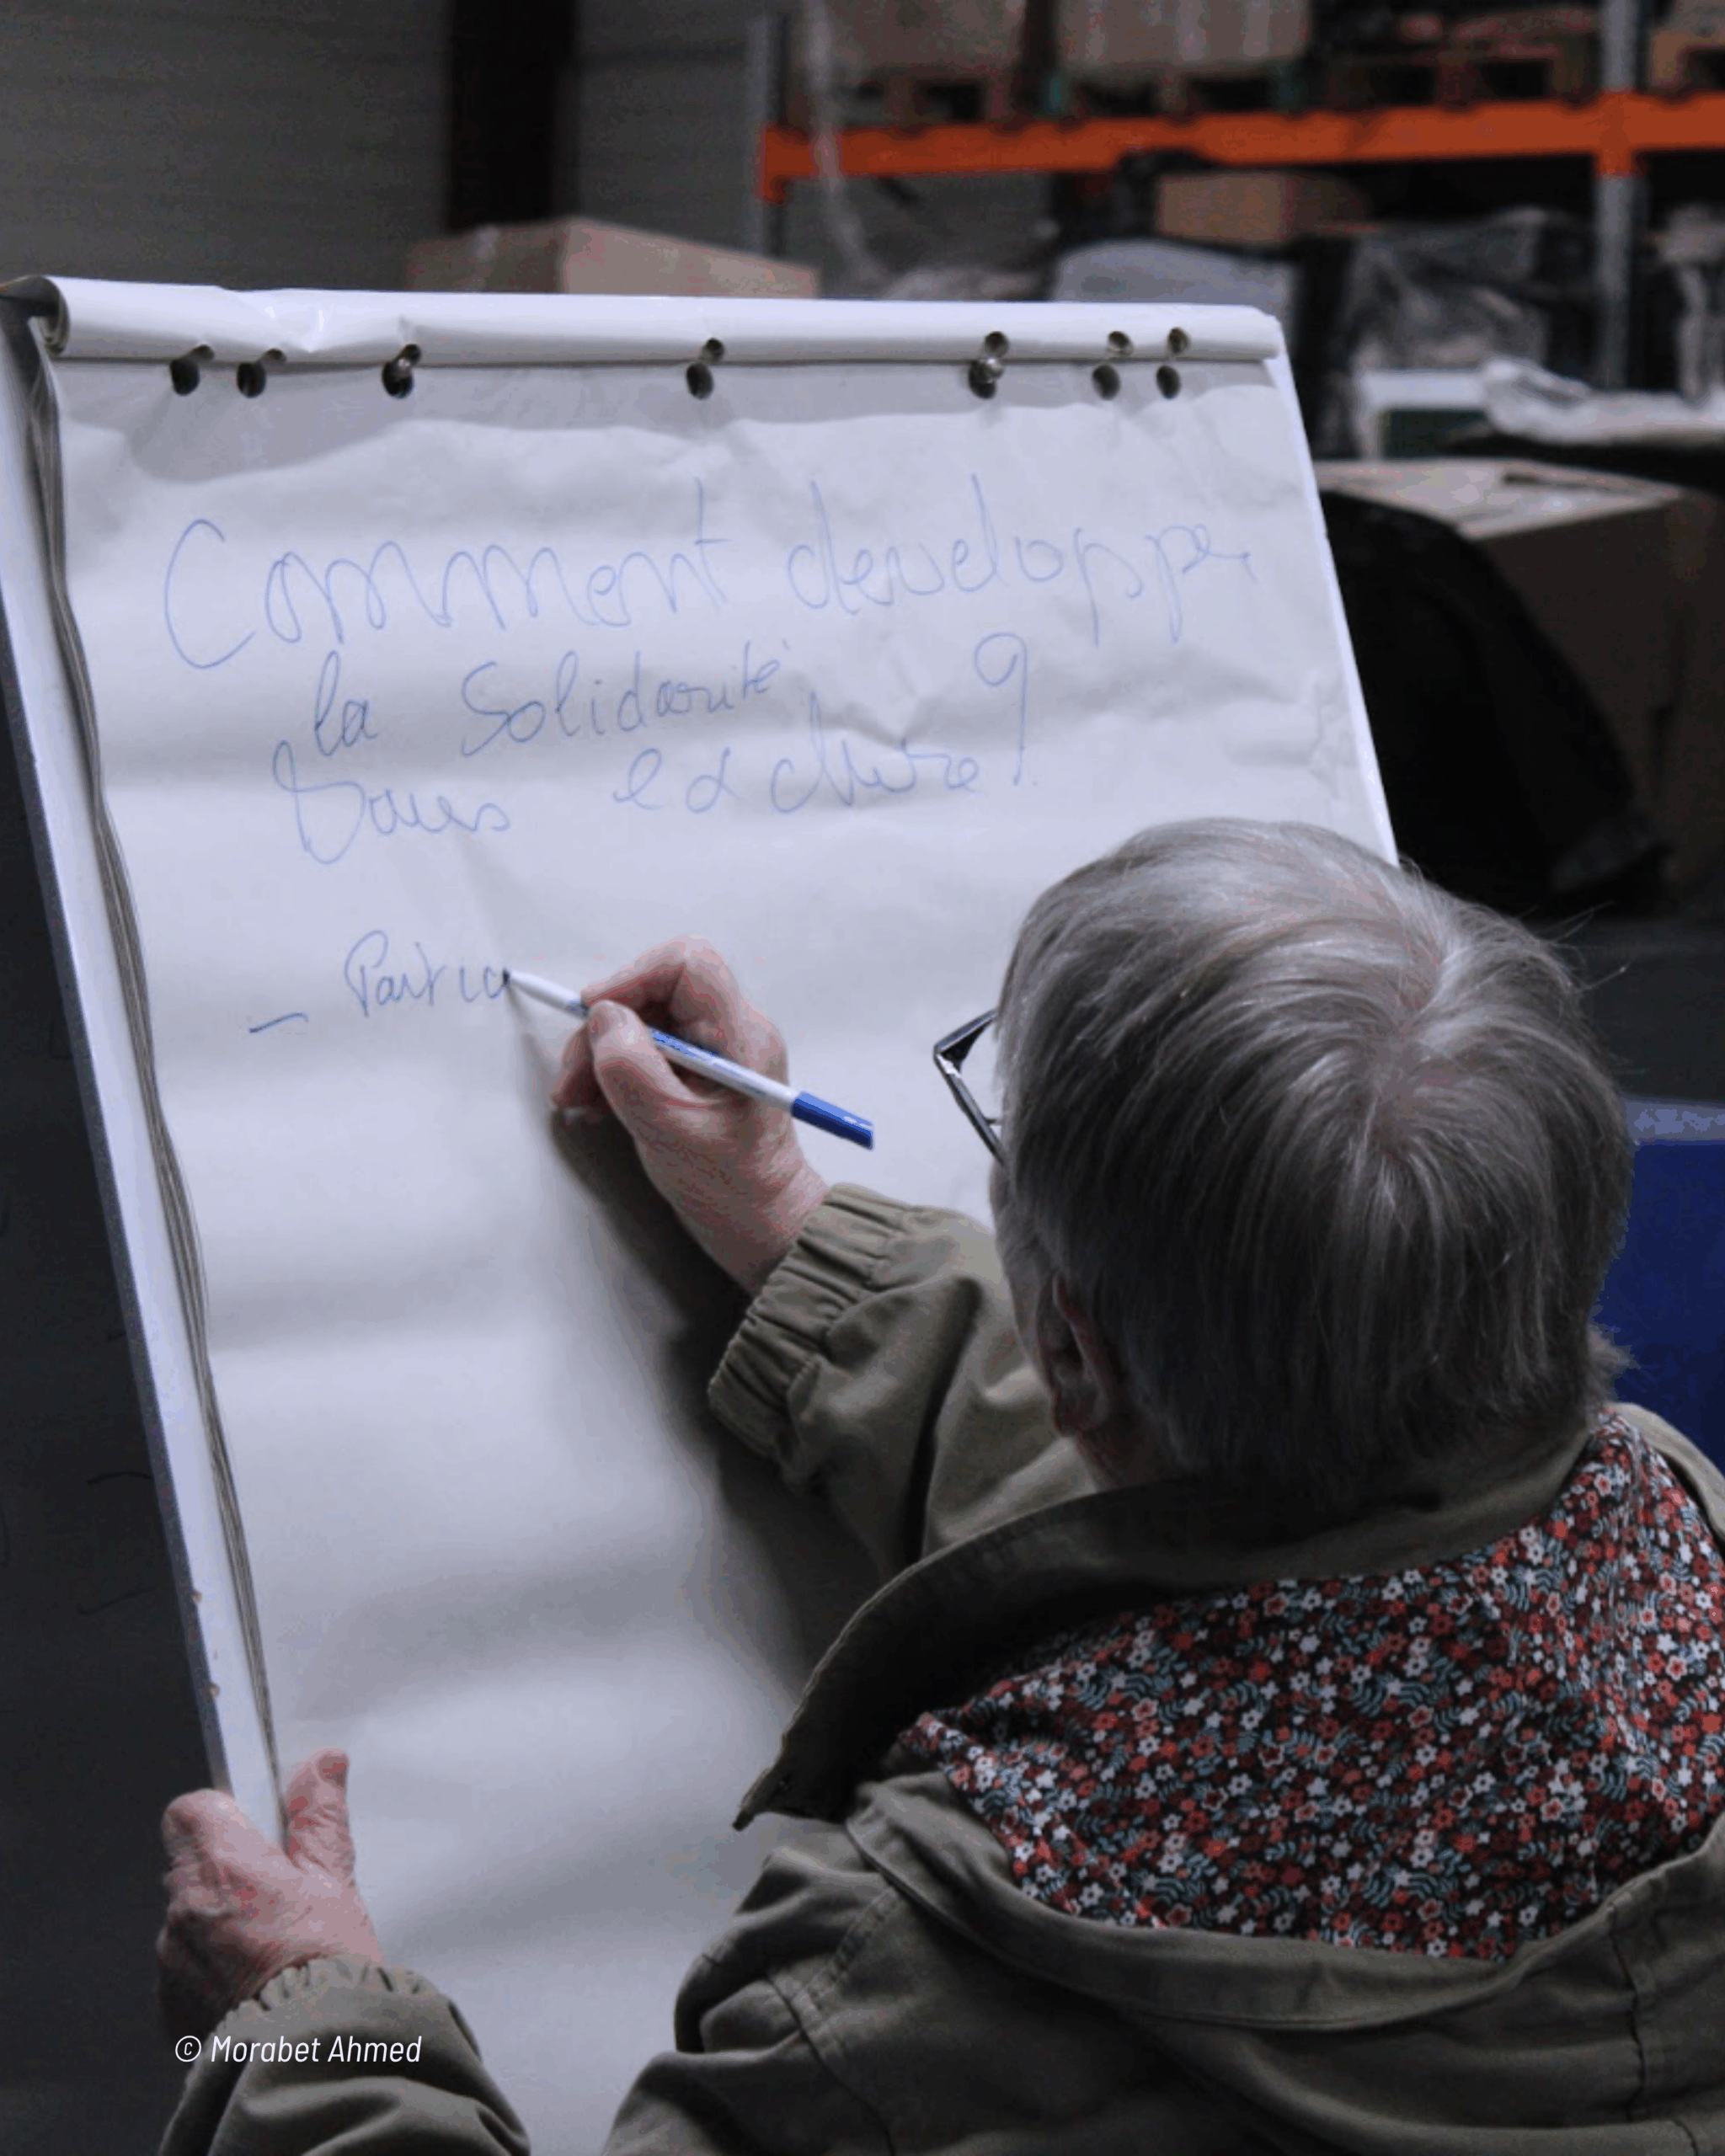 Comment developper
la Solidarité
Sans exclure ?
- Partici
© Morabet Ahmed